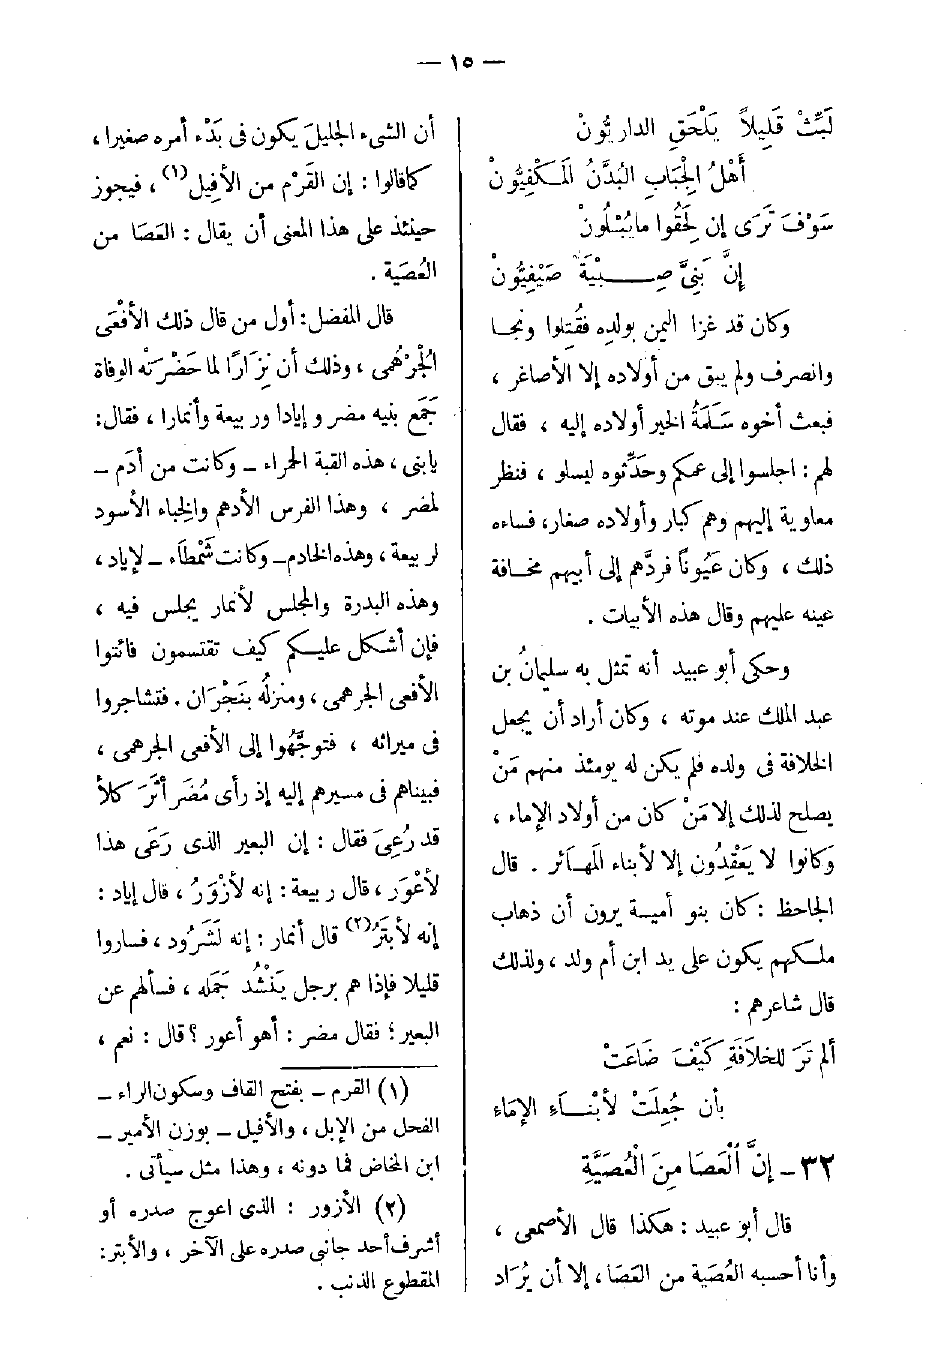 — ١٥ —
لَبِّثْ قَلِيلاً يَلْحَقِ الداريُّونْ
أَهْلُ الْجِبَابِ البُدَّنُ الْمَكْفِيُّونْ
سَوْفَ تَرَى إن لَحِقُوا ما يُبْلُونْ
إنَّ بَنِيَّ صِبْيَةٌ صَيْفِيُّونْ
وكان قد غزا اليمن بولدِه فقُتِلوا ونجا
وانصرف ولم يبق من أولاده إلا الأصاغر ،
فبعث أخوه سَلَمَةُ الخير أولاده إليه ، فقال
لهم : اجلسوا إلى عمكم وحدِّثوه ليسلو ، فنظر
معاوية إليهم وهم كبار وأولاده صغار، فساءه
ذلك ، وكان عَيُوناً فردَّهم إلى أبيهم مخافة
عينه عليهم وقال هذه الأبيات .
وحكى أبو عبيد أنه تمثل به سليمانُ بن
عبد الملك عند موته ، وكان أراد أن يجعل
الخلافة فى ولده فلم يكن له يومئذ منهم مَنْ
يصلح لذلك إلا مَنْ كان من أولاد الإماء ،
وكانوا لا يَعْقِدُون إلا لأبناء المَهائر . قال
الجاحظ : كان بنو أمية يرون أن ذهاب
ملكهم يكون على يد ابن أم ولد ، ولذلك
قال شاعرهم :
ألم تَرَ للخلاَفَةِ كَيْفَ ضَاعَتْ
بأن جُعِلَتْ لأبْنَاءِ الإمَاءِ
٣٢ – إنَّ الْعَصَا مِنَ الْعُصَيَّةِ
قال أبو عبيد : هكذا قال الأصمعى ،
وأنا أحسبه العُصَية من العَصَا ، إلا أن يُرَاد
أن الشىء الجليلَ يكون فى بَدْء أمره صغيرا ،
كما قالوا : إن القَرْم من الأفِيل(١) ، فيجوز
حينئذ على هذا المعنى أن يقال : العَصَا من
العُصَية .
قال المفضل : أول من قال ذلك الأفْعَى
الْجُرْهُمى ، وذلك أن نِزَارًا لما حَضَرَتْه الوفاة
جَمَع بنيه مضر وإيادا وربيعة وأنمارا ، فقال:
يابنى ، هذه القبة الحمراء – وكانت من أدَم –
لمضر ، وهذا الفرس الأدهم والخِباء الأسود
لربيعة ، وهذه الخادم – وكانت شَمْطَاء – لإياد ،
وهذه البدرة والمجلس لأنمار يجلس فيه ،
فإن أشكل عليكم كيف تقتسمون فائتوا
الأفعى الجرهمى ، ومنزلُه بنَجْرَان . فتشاجروا
فى ميراثه ، فتوجَّهُوا إلى الأفعى الجرهمى ،
فبيناهم فى مسيرهم إليه إذ رأى مُضَر أثَرَ كلأ
قد رُعِىَ فقال : إن البعير الذى رَعَى هذا
لأعْوَر ، قال ربيعة : إنه لأزْوَرُ ، قال إياد :
إنه لأبتَرُ(٢) قال أنمار : إنه لَشَرُود ، فساروا
قليلا فإذا هم برجل يَنْشُد جَمَله ، فسألهم عن
البعير ؛ فقال مضر : أهو أعور ؟ قال : نعم ،
(١) القرم – بفتح القاف وسكون الراء –
الفحل من الإبل ، والأفيل – بوزن الأمير –
ابن المخاض فما دونه ، وهذا مثل سيأتى .
(٢) الأزور : الذى اعوج صدره أو
أشرف أحد جانبى صدره على الآخر ، والأبتر:
المقطوع الذنب .